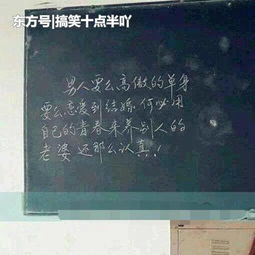 东方号|搞笑十点半吖
男人要么高傲的单身
要么恋爱到结婚.何必用
自己的青春来养别人的
老婆还那么认真!